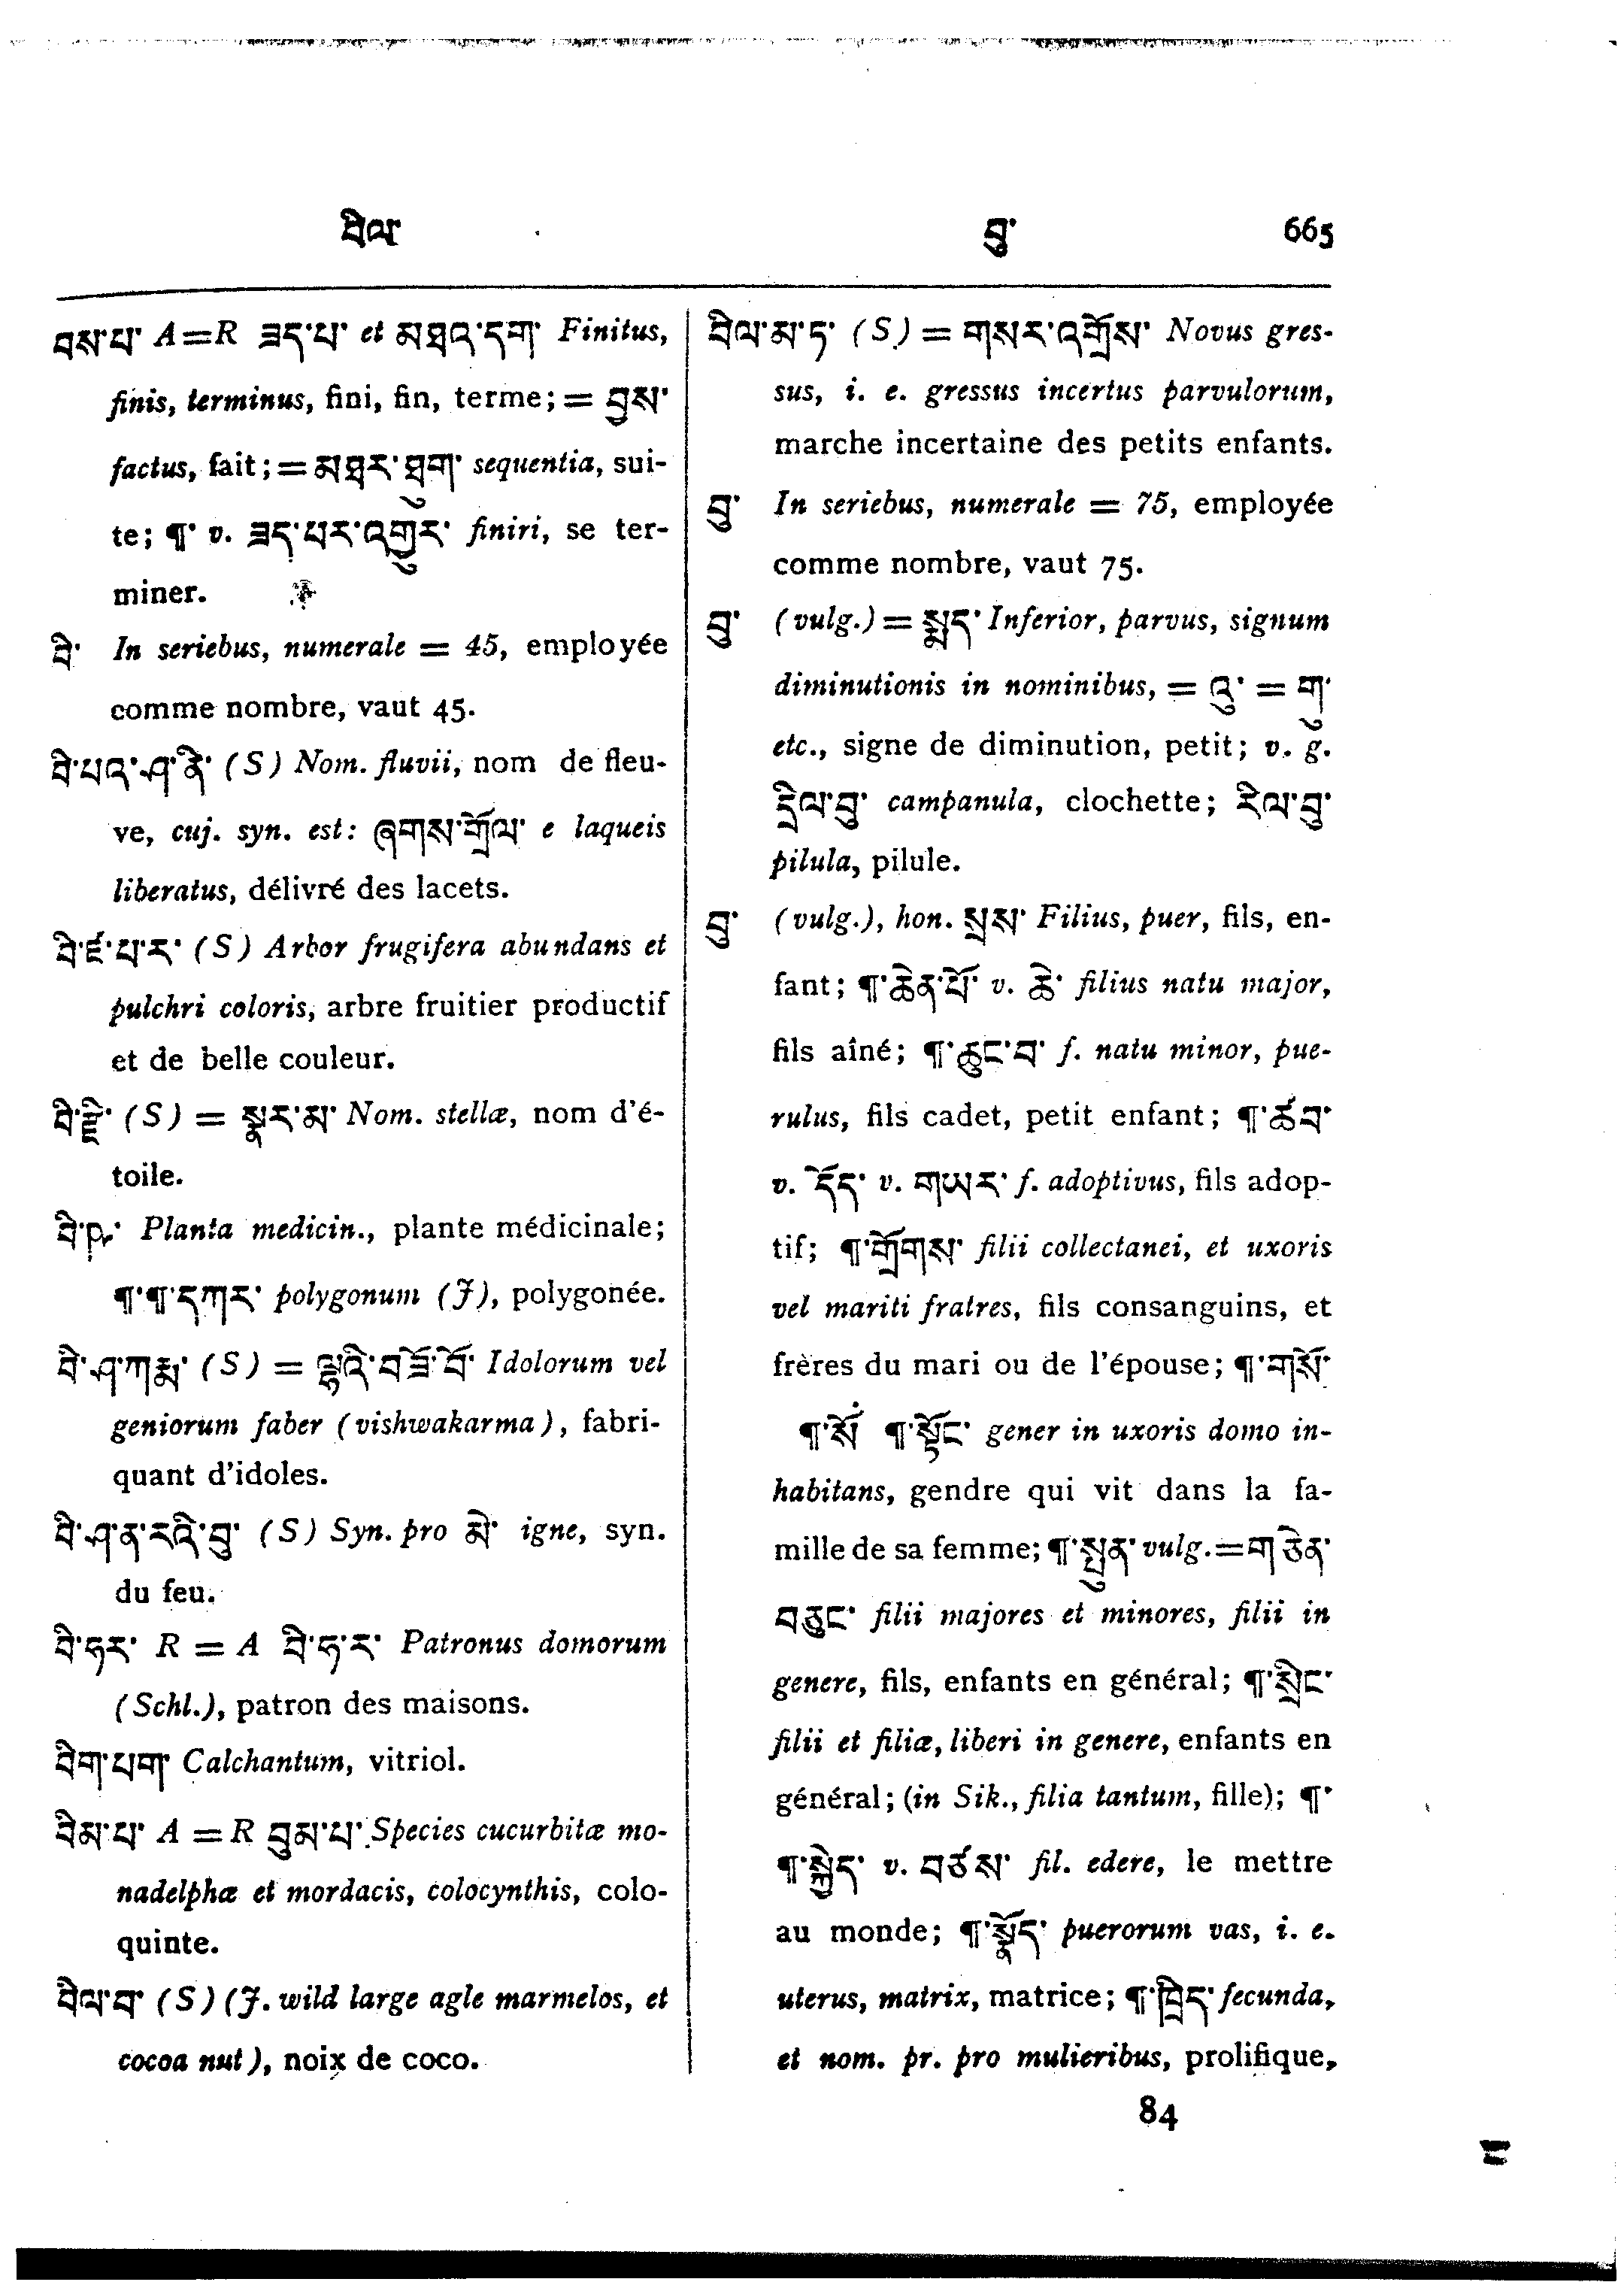 བིལ་
བུ་ 665
བས་པ་ A=R ཟད་པ་ et མཐའ་དག་ Finitus,
finis, terminus, fini, fin, terme; = བྱས་
factus, fait; = མཐར་ཐུག་ sequentia, sui-
te; ¶་ v. ཟད་པར་འགྱུར་ finiri, se ter-
miner.
བི་ In seriebus, numerale = 45, employée
comme nombre, vaut 45.
བི་པའ་ཤ་ནི་ (S) Nom. fluvii, nom de fleu-
ve, cuj. syn. est: ཞགས་གྲོལ་ e laqueis
liberatus, délivré des lacets.
བི་ཛ་པ་ར་ (S) Arbor frugifera abundans et
pulchri coloris, arbre fruitier productif
et de belle couleur.
བི་ཛྫི་ (S) = སྣར་མ་ Nom. stellæ, nom d'é-
toile.
བི་ Planta medicin., plante médicinale;
¶་¶་དཀར་ polygonum (J), polygonée.
བི་ཤ་ཀརྨ་ (S) = ལྷའི་བཟོ་བོ་ Idolorum vel
geniorum faber (vishwakarma), fabri-
quant d'idoles.
བི་ཤ་ན་རའི་བུ་ (S) Syn. pro མེ་ igne, syn.
du feu.
བི་ཧར་ R = A བི་ཧ་ར་ Patronus domorum
(Schl.), patron des maisons.
བིག་པག་ Calchantum, vitriol.
བིམ་པ་ A = R བུམ་པ་ Species cucurbitæ mo-
nadelphæ et mordacis, colocynthis, colo-
quinte.
བིལ་བ་ (S) (J. wild large agle marmelos, et
cocoa nut), noix de coco.
བིལ་མ་ཏ་ (S) = གསར་འགྲོས་ Novus gres-
sus, i. e. gressus incertus parvulorum,
marche incertaine des petits enfants.
བུ་ In seriebus, numerale = 75, employée
comme nombre, vaut 75.
བུ་ (vulg.) = སྨད་ Inferior, parvus, signum
diminutionis in nominibus, = འུ་ = གུ་
etc., signe de diminution, petit; v. g.
དྲིལ་བུ་ campanula, clochette; རིལ་བུ་
pilula, pilule.
བུ་ (vulg.), hon. སྲས་ Filius, puer, fils, en-
fant; ¶་ཆེན་པོ་ v. ཆེ་ filius natu major,
fils aîné; ¶་ཆུང་བ་ f. natu minor, pue-
rulus, fils cadet, petit enfant; ¶་ཚབ་
v. དོད་ v. གཡར་ f. adoptivus, fils adop-
tif; ¶་གྲོགས་ filii collectanei, et uxoris
vel mariti fratres, fils consanguins, et
frères du mari ou de l'épouse; ¶་གསོ་
¶་སོ ¶་སྟོང་ gener in uxoris domo in-
habitans, gendre qui vit dans la fa-
mille de sa femme; ¶་སྤུན་ vulg.=གཅེན་
བཅུང་ filii majores et minores, filii in
genere, fils, enfants en général; ¶་སྲིང་
filii et filiæ, liberi in genere, enfants en
général; (in Sik., filia tantum, fille); ¶་
¶་སྐྱེད་ v. བཙས་ fil. edere, le mettre
au monde; ¶་སྣོད་ puerorum vas, i. e.
uterus, matrix, matrice; ¶་ཁྲིད་ fecunda,
et nom. pr. pro mulieribus, prolifique,
84